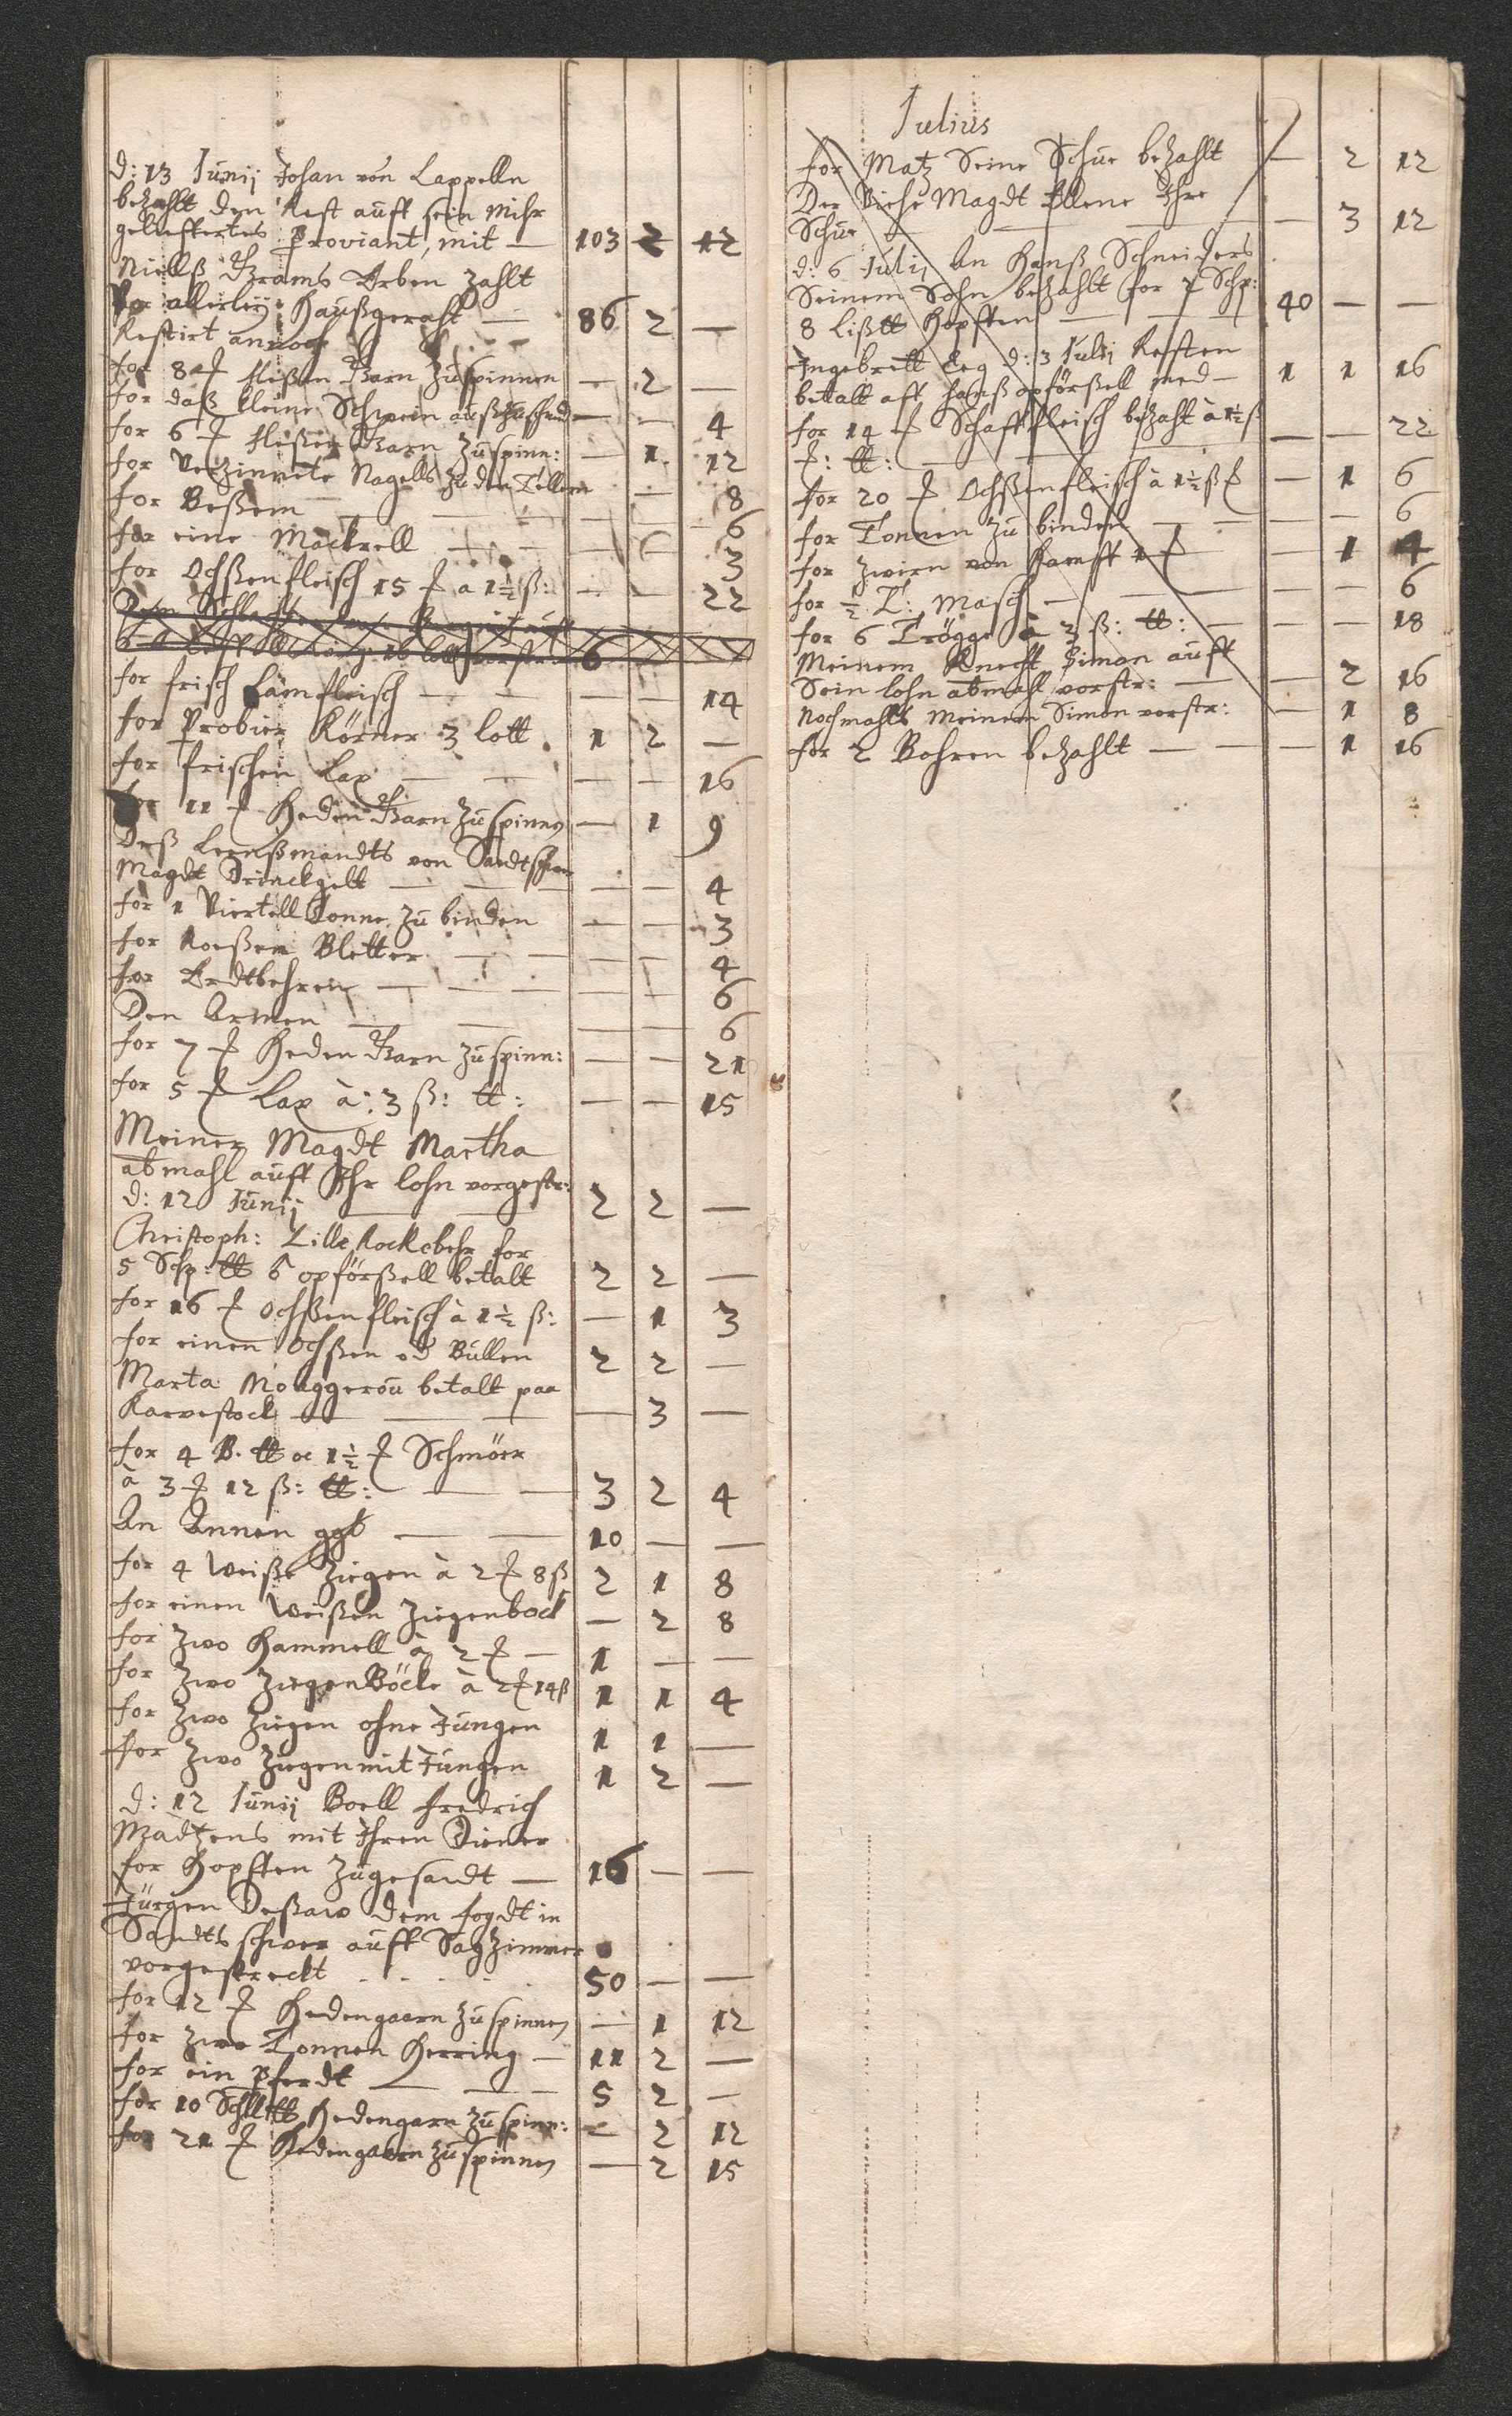 d: 13 Iunij Johan von Cappelln
bezahlt den Rest auff sein mihr
gelieffertes Proviant, mit — 103 2 12
Niellß Brams Erben zahlt
Vor allerleij Haußgeraht — 86 2 —
Restirt annoch
for 8 ℔ fleßen Garn zu spinnen — 2 —
for daß kleine Schwein außzuschnd — — 4
for 6 ℔ fleßen Garn zu spinn: — 1 12
for Verzinnete Nagells zu den Tellern — 8
for Beßem — — — 6
for eine Mackrell — — — 3
for Ochßenfleisch 15 ℔ a 1½ ß: — — 22
6
for frisch Lamfleisch — — — 14
for Probier Körner 3 lott 1 2 —
for frischen Lax — — — 16
for 11 ℔ Heden Garn zu spinnen — 1 9
Deß Lenßmandts von Sandtschwer
Magdt Drinckgelt — — — 4
for 1 Viertell Tonne zu binden — — 3
for Roeßen Bletter — — — 4
for Erdtbehren — — — 6
Den Armen — — — 6
for 7 ℔ Heden Garn zu spinn: — — 21
for 5 ℔ Lax à: 3 ß: ℔: — — 15
Meiner Magdt Martha
abmahl auff Ihr lohn vorgestr:
d: 12 Iunij — 2 2 —
Christoph: Lille Rockebehr for
5 Schp: ℔ 6 opförßell betalt 2 2 —
for 16 ℔ Ochßenfleisch à 1½ ß: — 1 3
for einen Ochßen od Bullen 2 2 —
Marta Mouggerou betalt paa
Karvestock — — — 3 —
for 4 B. ℔ oc 1½ ℔ Schmöer
à 3 ℔ 12 ß: ℔: — — 3 2 4
An Annen ggb — — 10 — —
for 4 Weiße Ziegen à 2 ℔ 8 ß 2 1 8
for einen Weißen Ziegenbock — 2 8
for Zwo Hammell à 2 ℔ — 1 — —
for Zwo ZiegenBöcke à 2 ℔ 14 ß 1 1 4
for Zwo Ziegen ohne Jungen 1 1 —
for Zwo Ziegen mit Jungen 1 2 —
d: 12 Iunij Boell fredrich
Madtzens mit Ihren Diener
for Hopffen zugesandt — 16 — —
Jürgen Deßaw dem fogdt in
Sandtsschwer auff Sagzimmer
vorgestreckt . . . . . 50 — —
for 12 ℔ Hedengaarn zu spinnen — 1 12
for Zwo Tonnen Herring — 11 2 —
for ein Pferdt — — 5 2 —
for 10 Schll℔ Hedengarn zu spinn: — 2 12
for 21 ℔ Hedengaarn zu spinnen — 2 15
Iulius
for Matz Seine Schue bezahlt — 2 12
Der Viehe Magdt Ellene Ihre
Schue — — — 3 12
d: 6 Julij An Hanß Schneiders
Seinem Sohn bezahlt for 7 Schp:
8 Lißtt Hopffen — 40 — —
Ingebrett Eeg d: 3 Julij Resten
betalt aff hanß opförßell med — 1 1 16
for 14 ℔ Schaffleisch bezahlt à 1½ ß
℔: ℔: — — — 22
for 20 ℔ Ochßenfleisch à 1½ ß ℔ — 1 6
for Tonnen zu binden — — — 6
for Zwirn von Hanff 1 ℔ — 1 4
for ½ T: Masch — — — 6
for 6 Trögge à 3 ß: ℔: — — — 18
Meinem Knecht Simon auff
Sein lohn abmahl vorstr: — — 2 16
Nochmahls meinem Simon vorstr: — 1 8
for 2 Bohren bezahlt — — — 1 16